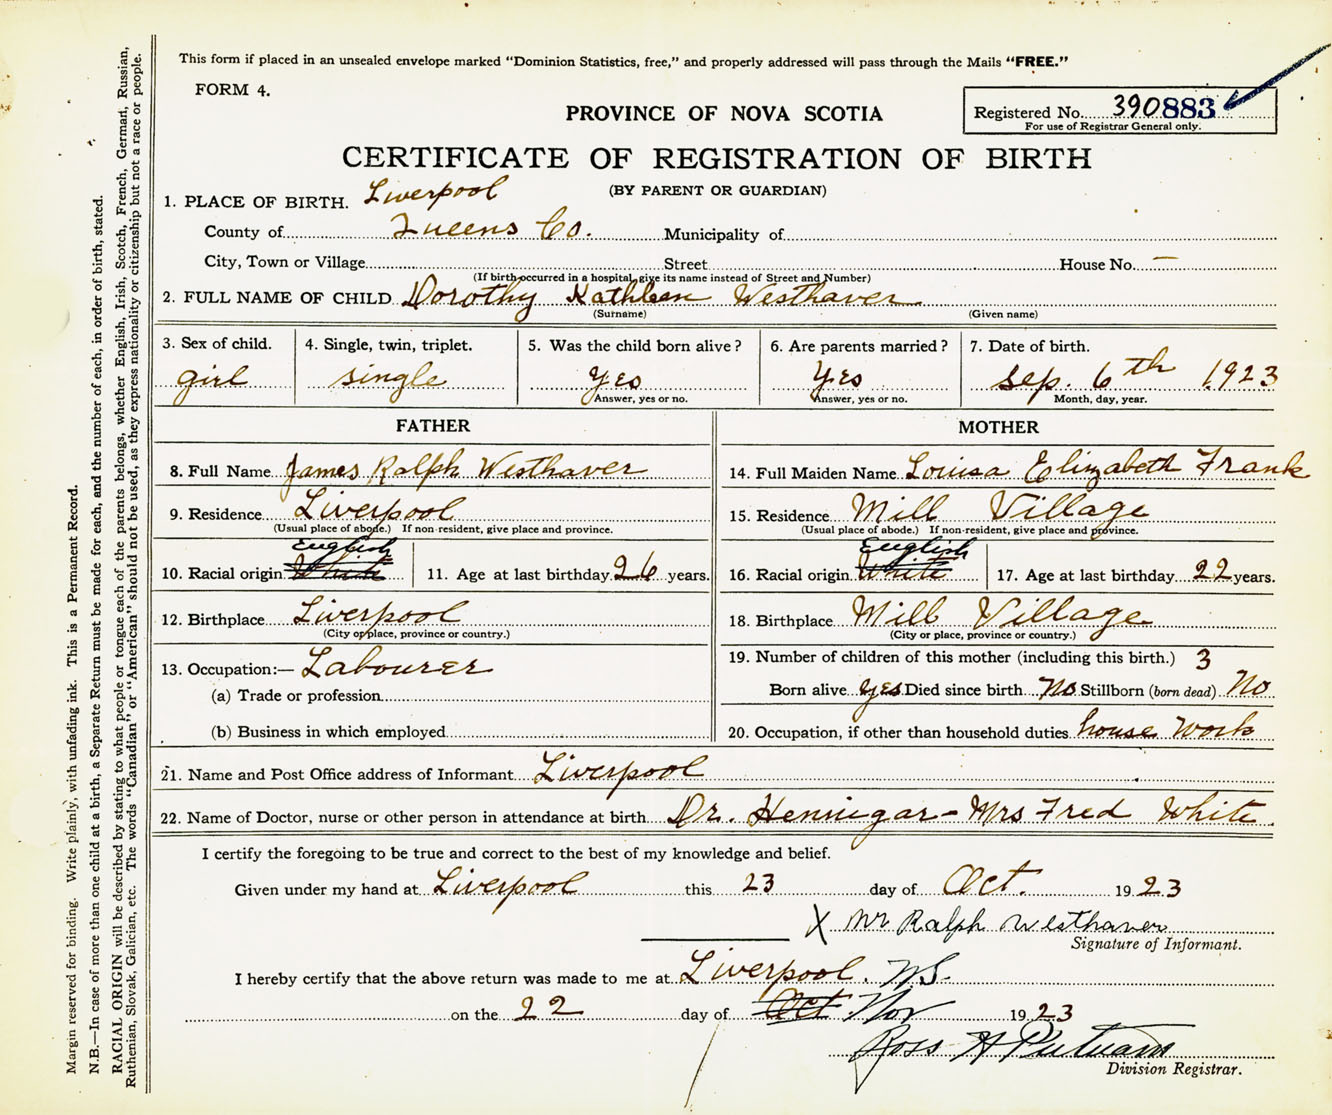 This form if placed in an unsealed envelope marked "Dominion Statistics, free," and properly addressed will pass through the Mails "FREE."
FORM 4.
Registered No. 390883
For use of Registrar General only.
PROVINCE OF NOVA SCOTIA
CERTIFICATE OF REGISTRATION OF BIRTH
(BY PARENT OR GUARDIAN)
1. PLACE OF BIRTH. Liverpool
County of Queens Co. Municipality of
City, Town or Village Street House No. —
(If birth occurred in a hospital, give its name instead of Street and Number)
2. FULL NAME OF CHILD Dorothy Kathleen Westhaver
(Surname) (Given name)
3. Sex of child. 4. Single, twin, triplet. 5. Was the child born alive? 6. Are parents married? 7. Date of birth.
girl single Yes Yes Sep. 6th 1923
Answer, yes or no. Answer, yes or no. Month, day, year.
FATHER
8. Full Name James Ralph Westhaver
9. Residence Liverpool
(Usual place of abode.) If non-resident, give place and province.
English
10. Racial origin White 11. Age at last birthday 26 years.
12. Birthplace Liverpool
(City or place, province or country.)
13. Occupation:— Labourer
(a) Trade or profession
(b) Business in which employed
MOTHER
14. Full Maiden Name Louisa Elizabeth Frank
15. Residence Mill Village
(Usual place of abode.) If non-resident, give place and province.
English
16. Racial origin White 17. Age at last birthday 22 years.
18. Birthplace Mill Village
(City or place, province or country.)
19. Number of children of this mother (including this birth.) 3
Born alive yes Died since birth No Stillborn (born dead) No
20. Occupation, if other than household duties house work
21. Name and Post Office address of Informant Liverpool
22. Name of Doctor, nurse or other person in attendance at birth Dr. Hennigar - Mrs Fred White
I certify the foregoing to be true and correct to the best of my knowledge and belief.
Given under my hand at Liverpool this 23 day of Oct. 1923
X Mr Ralph Westhaver
Signature of Informant.
I hereby certify that the above return was made to me at Liverpool. N.S.
on the 22 day of Oct Nov 1923
Ross H Putnam
Division Registrar.
Margin reserved for binding. Write plainly, with unfading ink. This is a Permanent Record.
N.B.—In case of more than one child at a birth, a Separate Return must be made for each, and the number of each, in order of birth, stated.
RACIAL ORIGIN will be described by stating to what people or tongue each of the parents belongs, whether English, Irish, Scotch, French, German, Russian,
Ruthenian, Slovak, Galician, etc. The words "Canadian" or "American" should not be used, as they express nationality or citizenship but not a race or people.